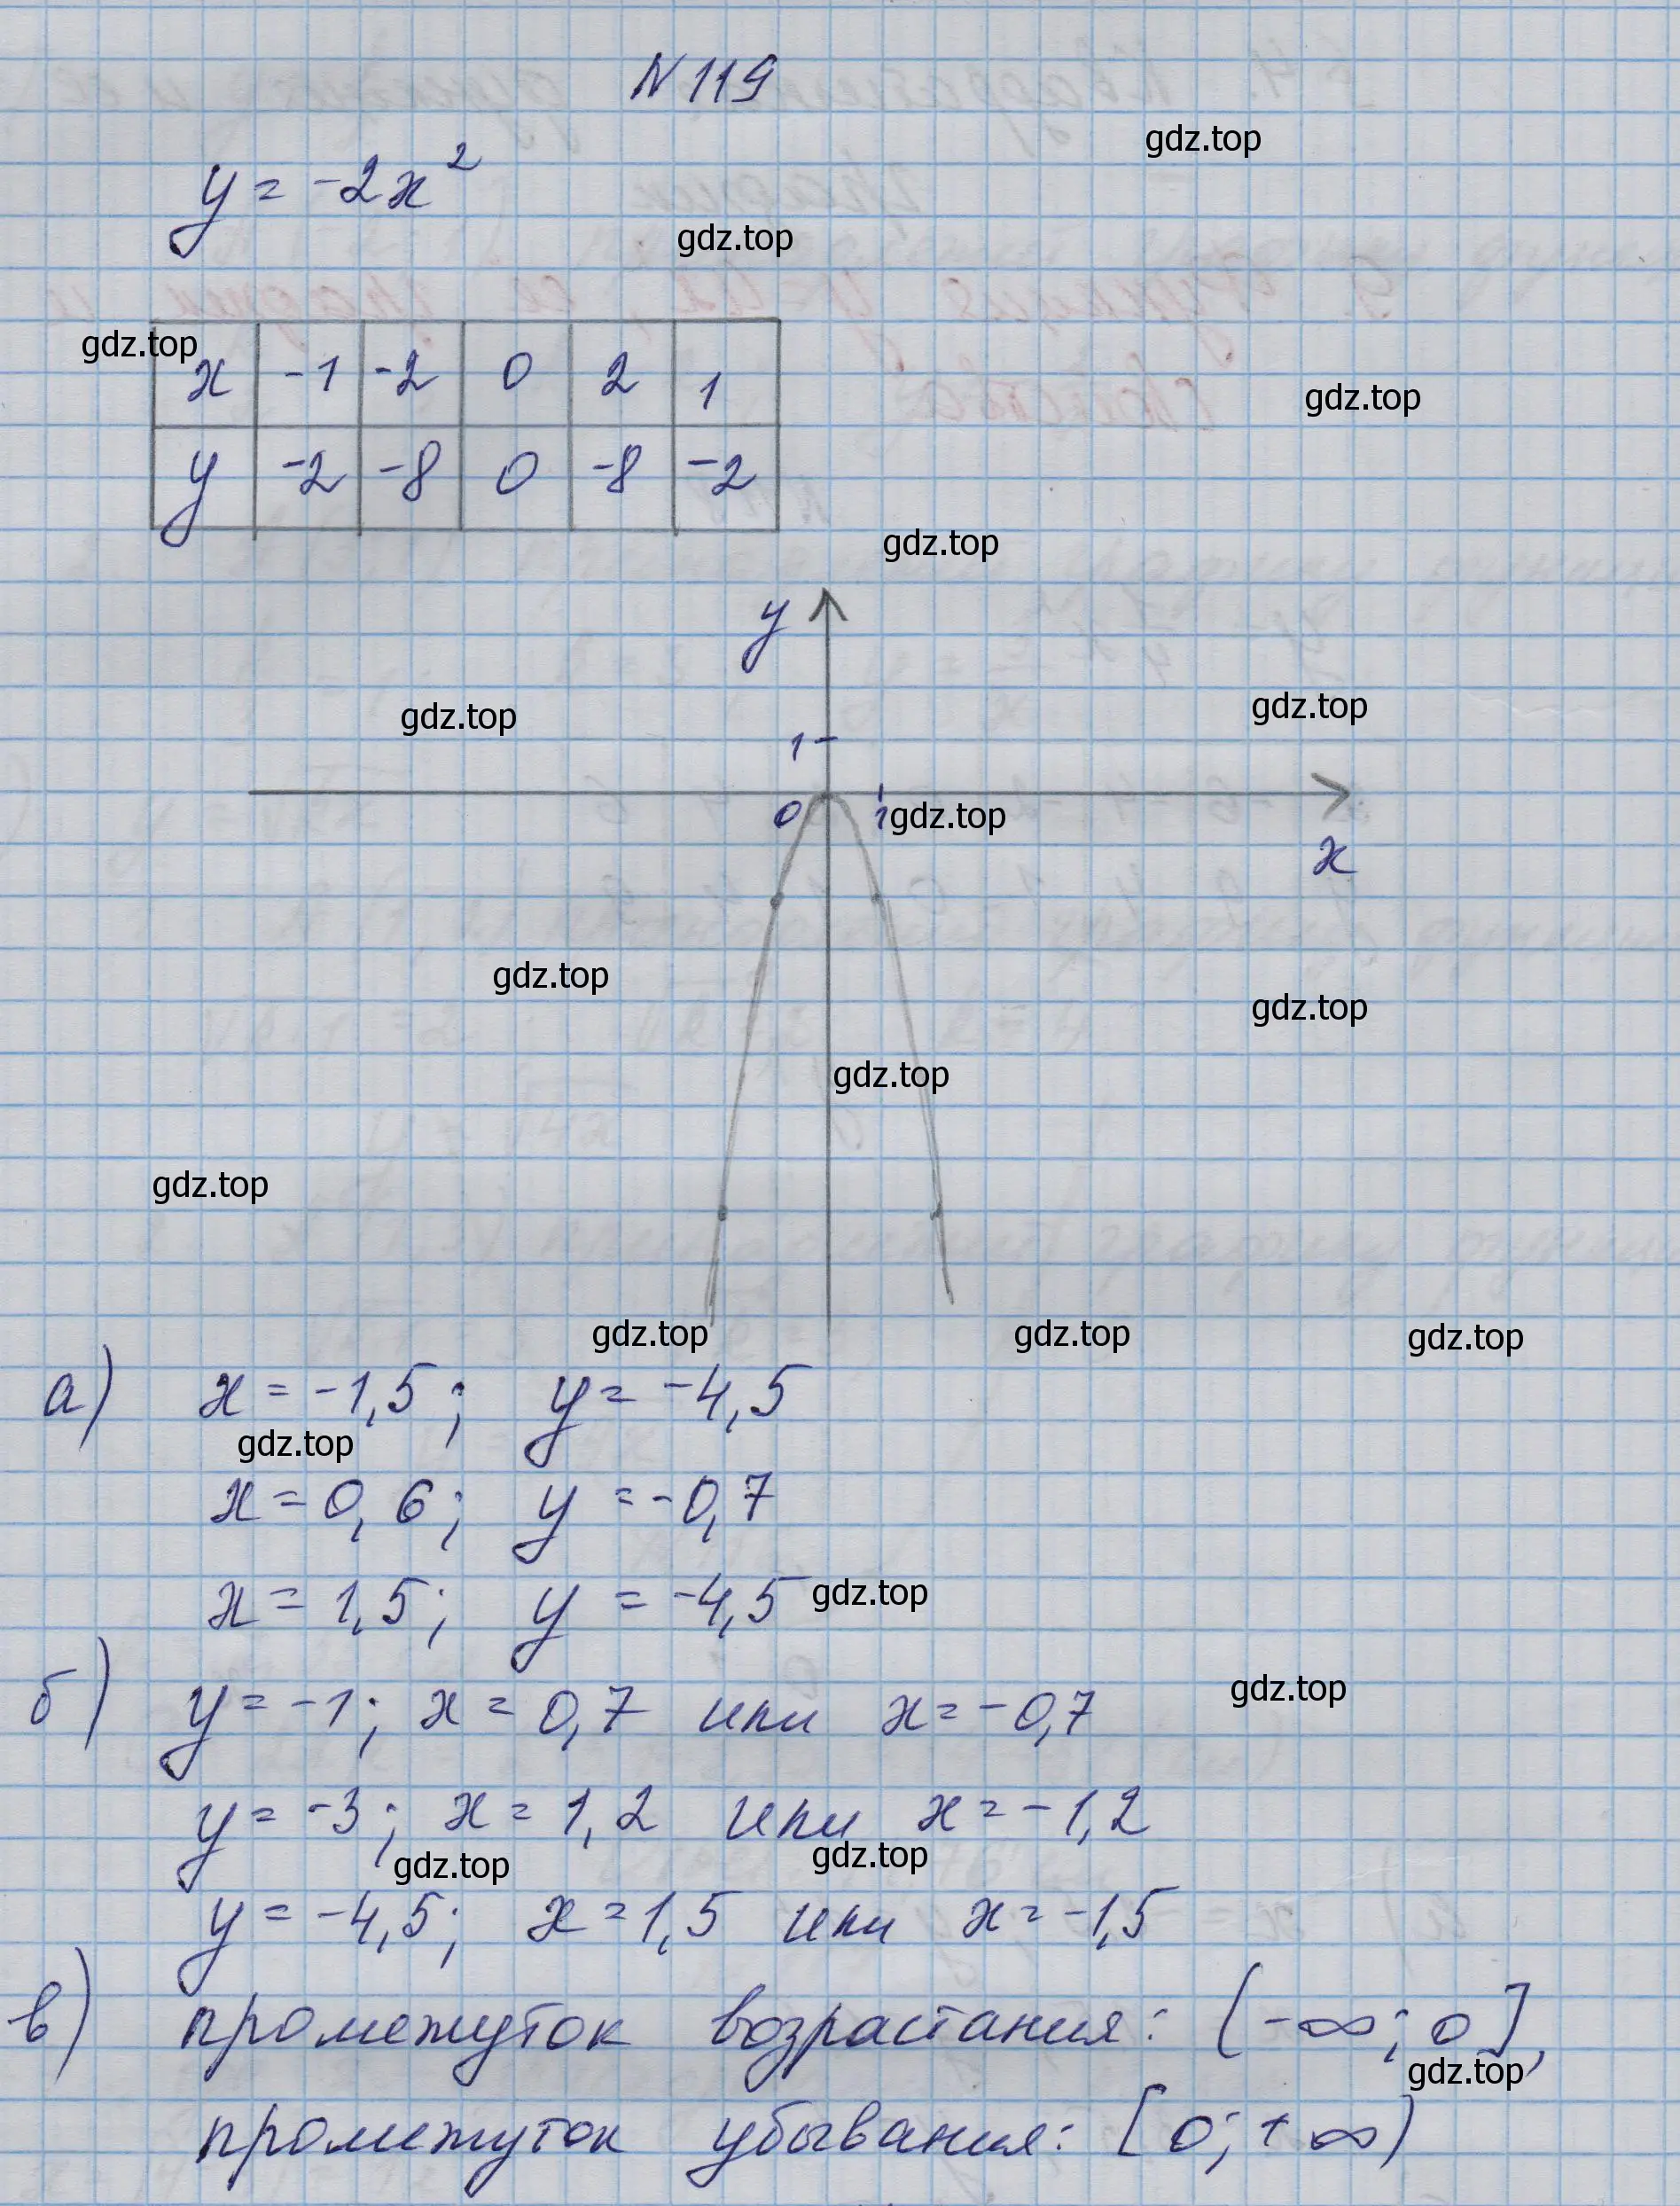 N 119
gdz.top
y = -2x²
gdz.top
gdz.top
x -1 -2 0 2 1
gdz.top
y -2 -8 0 -8 -2
gdz.top
y
gdz.top
gdz.top
1
0 1 gdz.top
x
gdz.top
gdz.top
gdz.top
gdz.top
gdz.top
gdz.top
gdz.top
а) x = -1,5; y = -4,5
gdz.top
x = 0,6; y = -0,7
x = 1,5; y = -4,5
gdz.top
б) y = -1; x = 0,7 или x = -0,7
gdz.top
y = -3; x = 1,2 или x = -1,2
gdz.top
gdz.top
y = -4,5; x = 1,5 или x = -1,5
в) промежуток возрастания: (-∞; 0],
gdz.top
промежуток убывания: [0; +∞)